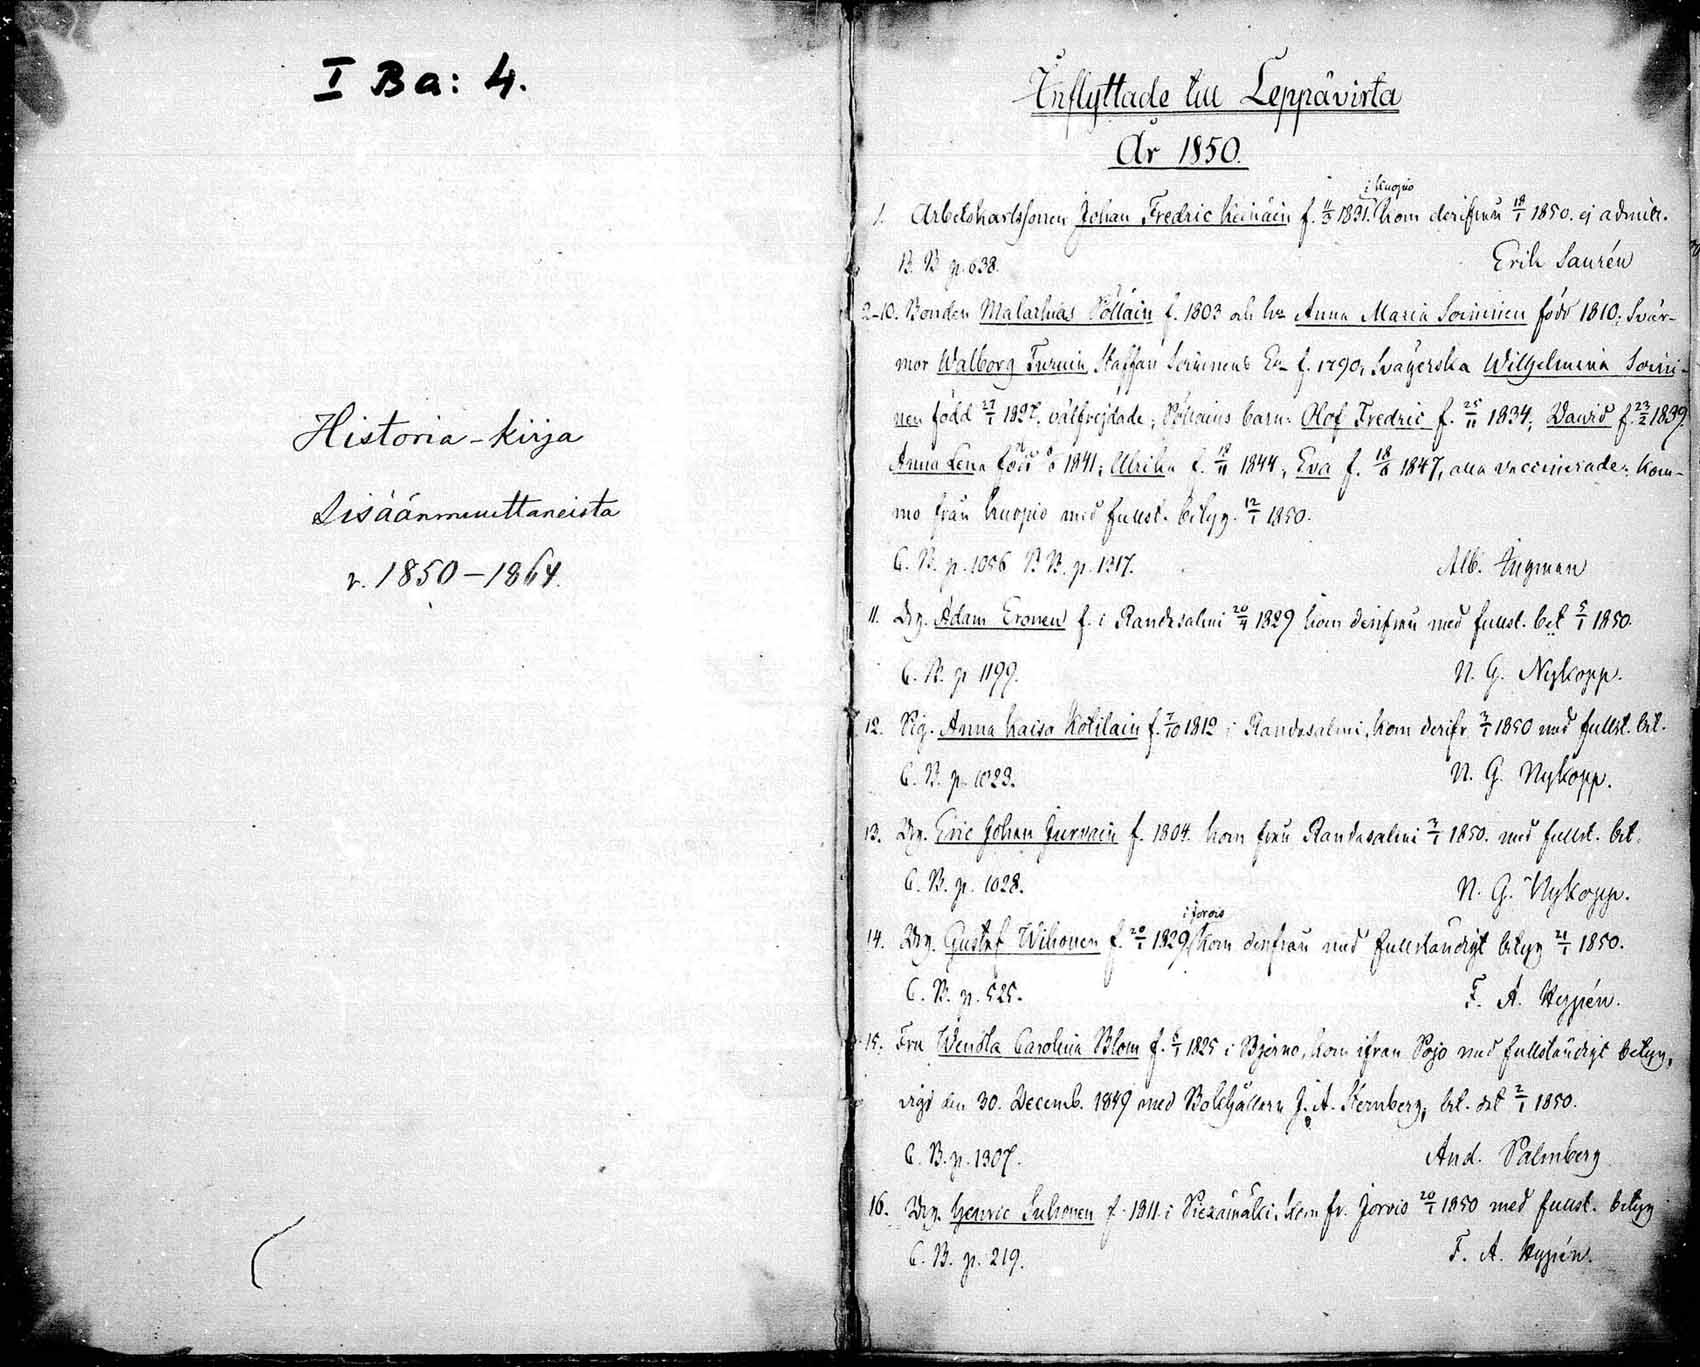 I Ba: 4.
Historia-kirja
Sisäänmuuttaneista
v. 1850-1864.
Inflyttade till Leppävirta
År 1850.
i Kuopio
1. Arbetskarlssonen Johan Fredric f. 11/3 1831. Kom derifrån 18/1 1850. ej admitt.
B. B p. 638. Erik Saurén
2-10. Bonden Pöllain f. 1803 och Anna Maria Soininen född 1810; Svär-
mor Walborg Staffan Soininens f. 1790, Svägerska Wilhelmina Soini-
nen född 27/1 1827. välfrejdade; Pöllains barn: Olof Fredric f. 25/11 1834; f. 23/2 1839.
Anna Lena född 1841; Ulrika f. 18/11 1844, Eva f. 18/8 1847, alla vaccinerade. Kom-
mo från Kuopio med fullst. betyg. 12/1 1850.
C. B. p. 1056 B B. p. 1317. Alb. Ingman
11. Drg. Adam Eronen f. i Randasalmi 20/4 1829 kom derifrån med fullst. bet 5/1 1850.
C. B. p 1199. N. G. Nykopp.
12. Pig. Anna Kaisa Kotilain f. 7/10 1812 i Randasalmi, kom derifr. 7/1 1850 med fullst. bet.
C. B. p. 1023. N. G. Nykopp.
13. Drg. Eric Johan Jurvain f. 1804. kom från Randasalmi 7/1 1850. med fullst. bet.
C. B. p. 1028. N. G. Nykopp.
i Jorois
14. Drg. Gustaf Wihonen f. 20/1 1829, kom derifrån med fullständigt betyg 21/1 1850.
C. B. p. 525. F. A. Hypén.
15. Fru Wendla Carolina Blom f. 1825 i Bjerno, kom ifrån Pojo med fullständigt betyg,
vigd den 30. Decemb. 1849 med Bokhållern J. A. Sternberg, bet. dat 2/1 1850.
C. B. p. 1307. And. Palmberg
16. Drg. Henric Suhonen f. 1811 i Piexämäki, kom fr. Jorois 20/1 1850 med fullst. betyg
C. B. p. 219. F. A. Hypén.